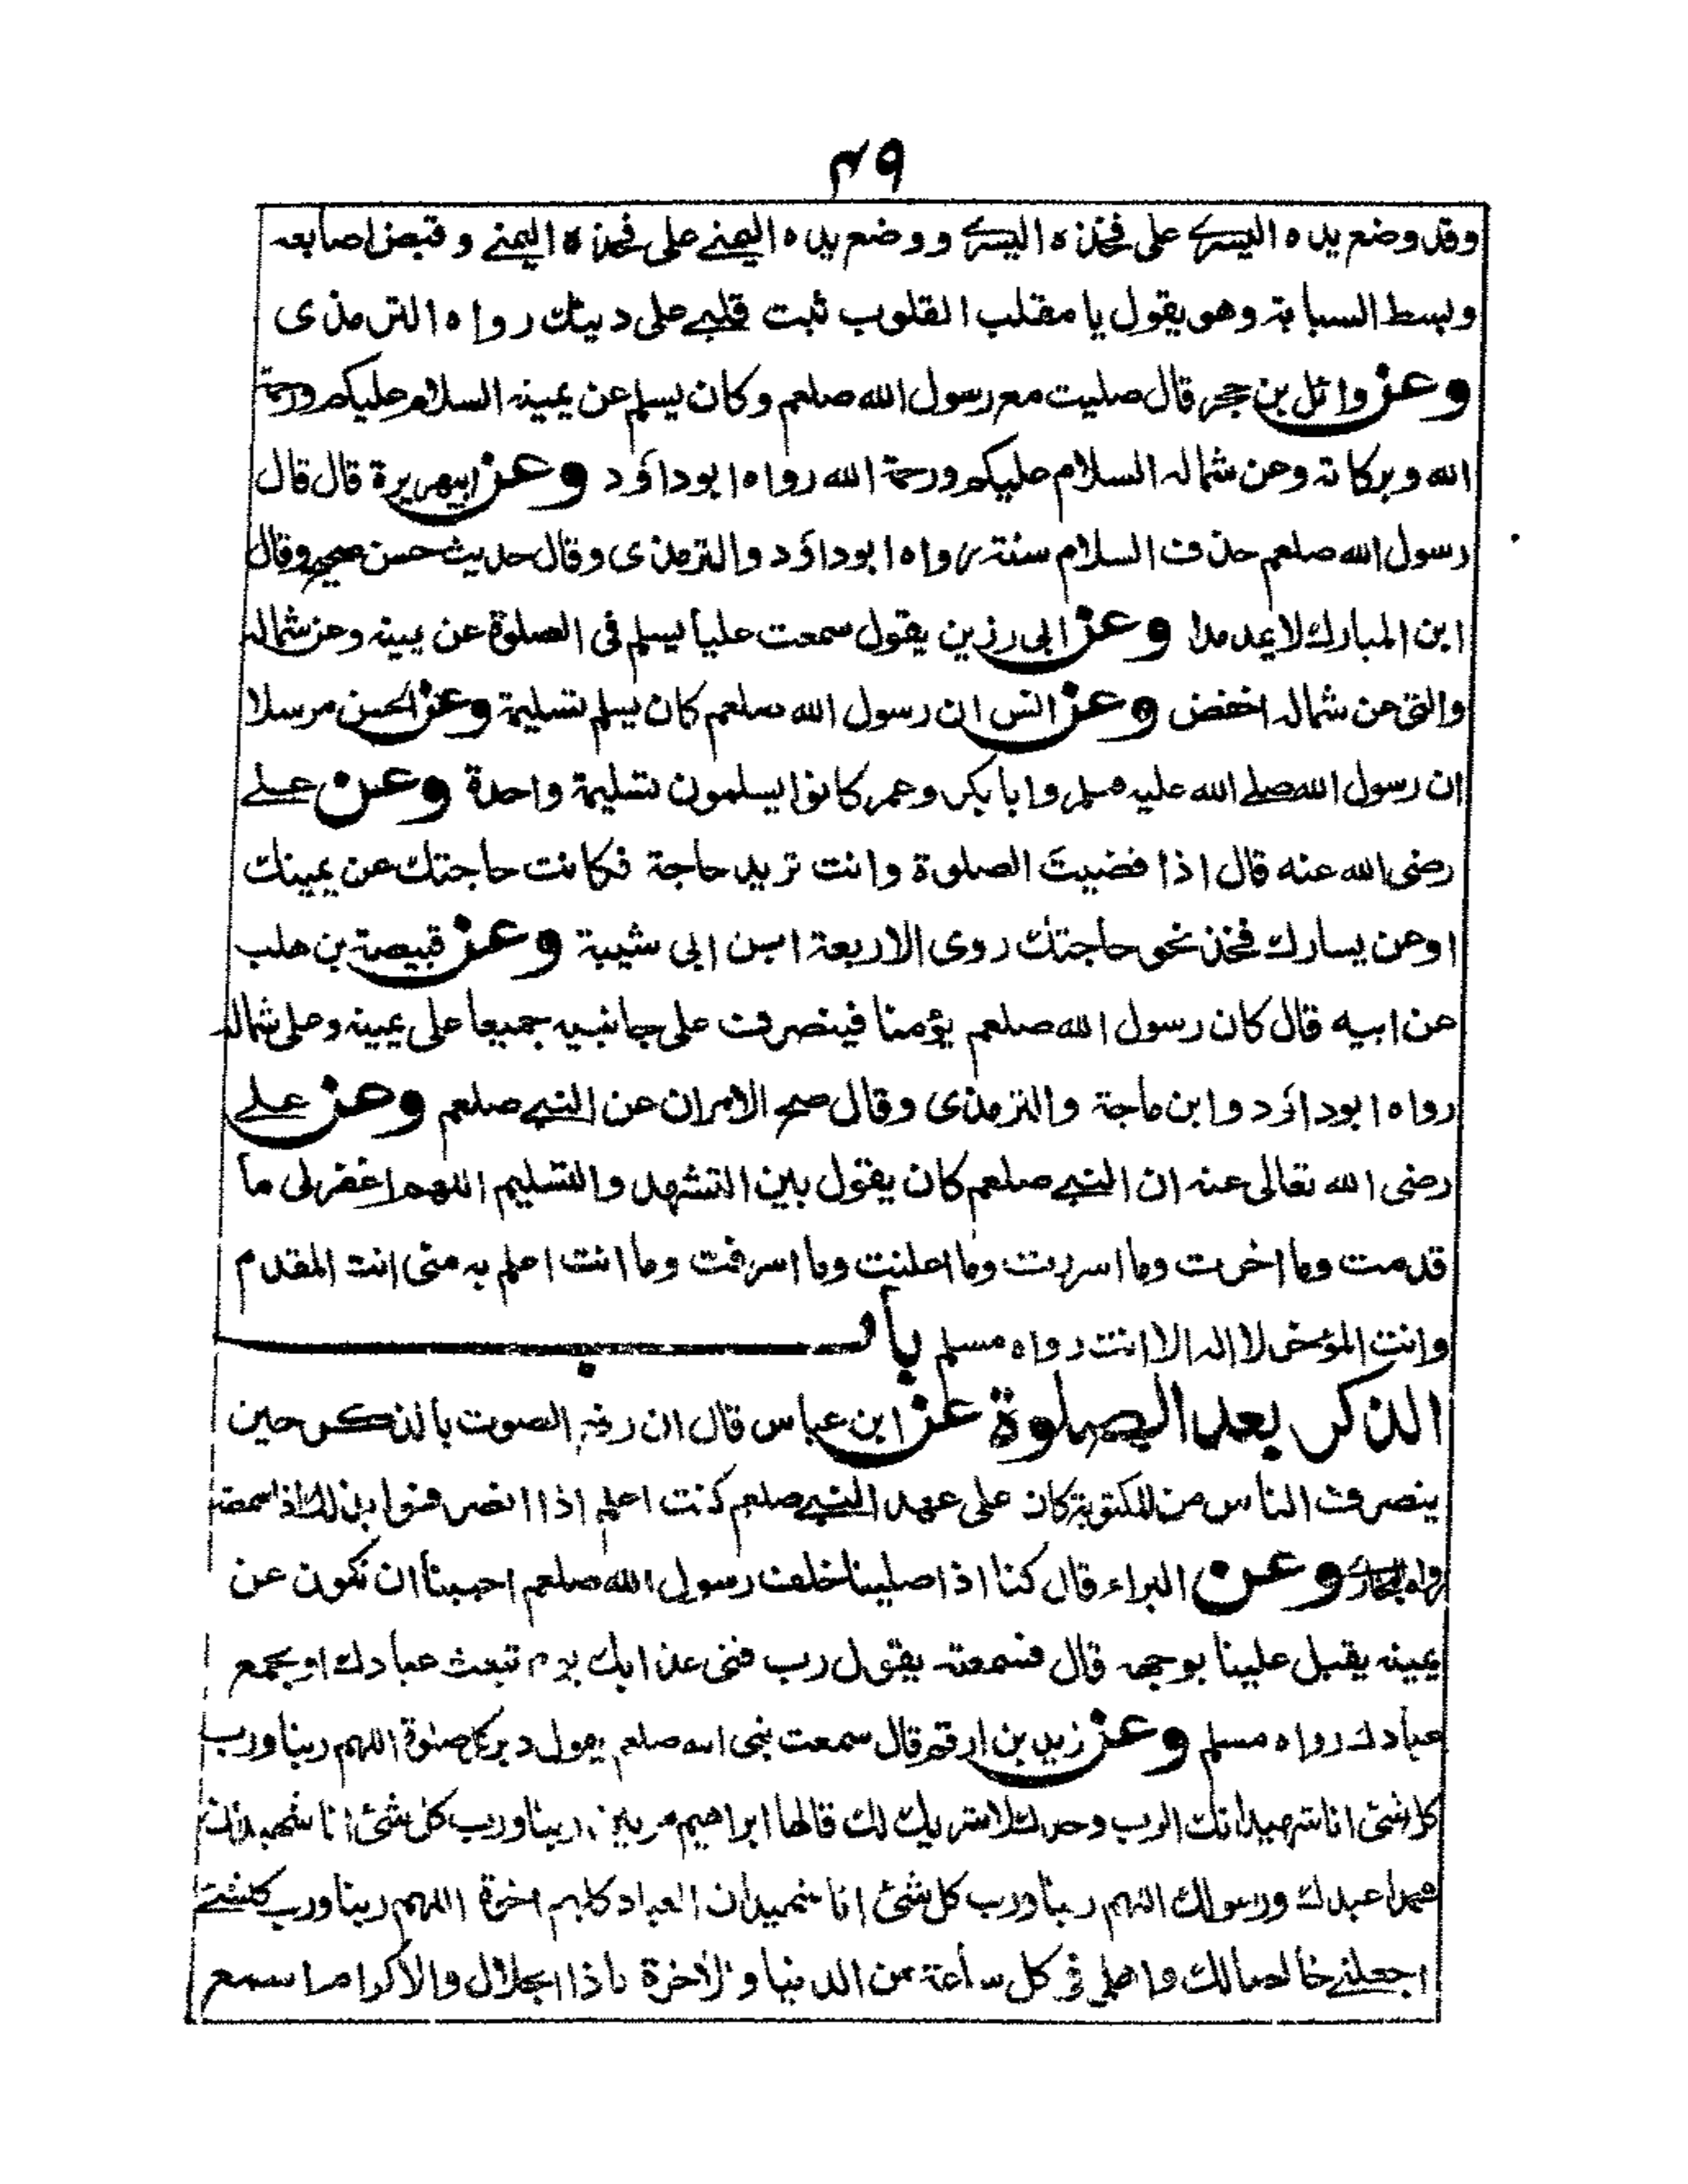 ٤٩
وقد وضع يده اليسرے على فخذه اليسرے ووضع يده اليمنے على فخذه اليمنے وقبض اصابعه
وبسط السبابة وهو يقول يا مقلب القلوب ثبت قلبے على دينك رواه الترمذى
وعن وائل بن حجر قال صليت مع رسول الله صلعم وكان يسلم عن يمينه السلام عليكم ورحمة
الله وبركاته وعن شماله السلام عليكم ورحمة الله رواه ابوداؤد وعن ابيهريرة قال قال
رسول الله صلعم حذف السلام سنة رواه ابوداؤد والترمذى وقال حديث حسن صحيح وقال
ابن المبارك لا يمد مدا وعن ابى رزين يقول سمعت عليا يسلم فى الصلوة عن يمينه وعن شماله
والتى عن شماله اخفض وعن انس ان رسول الله صلعم كان يسلم تسليمة وعن الحسن مرسلا
ان رسول الله صلے الله عليه وسلم وابا بكر وعمر كانوا يسلمون تسليمة واحدة وعن علے
رضى الله عنه قال اذا قضيت الصلوة وانت تريد حاجة فكانت حاجتك عن يمينك
اوعن يسارك فخذ نحو حاجتك روى الاربعة ابن ابى شيبة وعن قبيصة بن هلب
عن ابيه قال كان رسول الله صلعم يؤمنا فينصرف على جانبيه جميعا على يمينه وعلى شماله
رواه ابوداؤد وابن ماجة والترمذى وقال صح الامران عن النبے صلعم وعن علے
رضى الله تعالى عنه ان النبے صلعم كان يقول بين التشهد والتسليم اللهم اغفرلى ما
قدمت وما اخرت وما اسررت وما اعلنت وما اسرفت وما انت اعلم به منى انت المقدم
وانت المؤخر لا اله الا انت رواه مسلم باب
الذكر بعد الصلوة عن ابن عباس قال ان رفع الصوت بالذكر حين
ينصرف الناس من المكتوبة كان على عهد النبے صلعم كنت اعلم اذا انصرفوا بذلك اذا سمعته
رواه البخارے وعن البراء قال كنا اذا صلينا خلف رسول الله صلعم احببنا ان نكون عن
يمينه يقبل علينا بوجهه قال فسمعته يقول رب قنى عذابك يوم تبعث عبادك او تجمع
عبادك رواه مسلم وعن زيد بن ارقم قال سمعت نبى الله صلعم يقول دبر كل صلوة اللهم ربنا ورب
كل شئ انا شهيد انك الرب وحدك لا شريك لك قالها ابراهيم مرتين ربنا ورب كل شئ انا شهيد ان
محمدا عبدك ورسولك اللهم ربنا ورب كل شئ انا شهيد ان العباد كلهم اخوة اللهم ربنا ورب كلشئے
اجعلنے خالصا لك واهلى فى كل ساعة من الدنيا والاخرة ياذا الجلال والاكرام اسمع